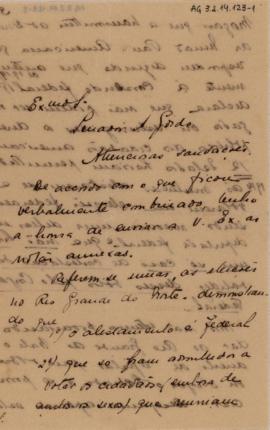 AG 3.2.14.123-1
Exmo. Sr.
Senador A. Gordo
Attenciosas saudações.
De accordo com o que ficou
verbalmente combinado, tenho
a honra de enviar a V. Ex. as
notas annexas.
Referem-se umas, ás eleições
no Rio Grande do Norte, demonstran-
do que
1) o alistamento é federal
2) que só foram admittidos a
votar os cidadãos, embora de
ambos os sexos, que